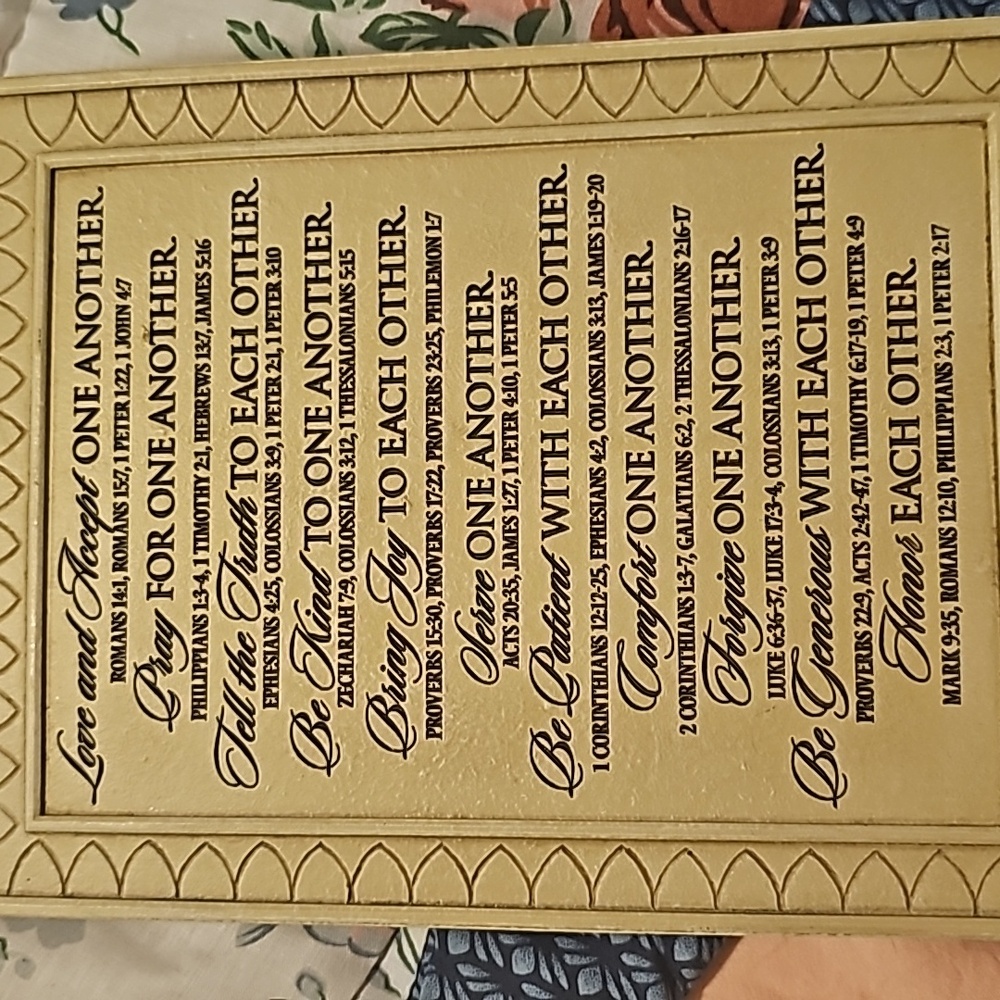 Love and Accept ONE ANOTHER.
ROMANS 14:1, ROMANS 15:7, 1 PETER 1:22, 1 JOHN 4:7
Pray FOR ONE ANOTHER.
PHILIPPIANS 1:3-4, 1 TIMOTHY 2:1, HEBREWS 13:7, JAMES 5:16
Tell the Truth TO EACH OTHER.
EPHESIANS 4:25, COLOSSIANS 3:9, 1 PETER 2:1, 1 PETER 3:10
Be Kind TO ONE ANOTHER.
ZECHARIAH 7:9, COLOSSIANS 3:12, 1 THESSALONIANS 5:15
Bring Joy TO EACH OTHER.
PROVERBS 15:30, PROVERBS 17:22, PROVERBS 23:25, PHILEMON 1:7
Serve ONE ANOTHER.
ACTS 20:35, JAMES 1:27, 1 PETER 4:10, 1 PETER 5:5
Be Patient WITH EACH OTHER.
1 CORINTHIANS 12:12-25, EPHESIANS 4:2, COLOSSIANS 3:13, JAMES 1:19-20
Comfort ONE ANOTHER.
2 CORINTHIANS 1:3-7, GALATIANS 6:2, 2 THESSALONIANS 2:16-17
Forgive ONE ANOTHER.
LUKE 6:36-37, LUKE 17:3-4, COLOSSIANS 3:13, 1 PETER 3:9
Be Generous WITH EACH OTHER.
PROVERBS 22:9, ACTS 2:42-47, 1 TIMOTHY 6:17-19, 1 PETER 4:9
Honor EACH OTHER.
MARK 9:35, ROMANS 12:10, PHILIPPIANS 2:3, 1 PETER 2:17